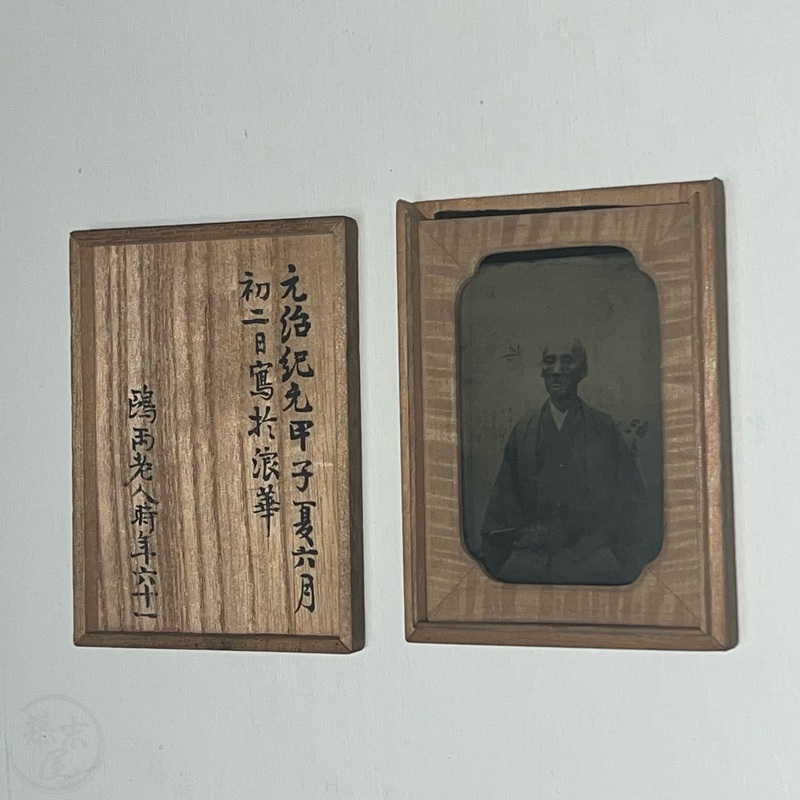 元治紀元甲子夏六月
初二日寫於浪華
鷗雨老人時年六十一
幕末屋